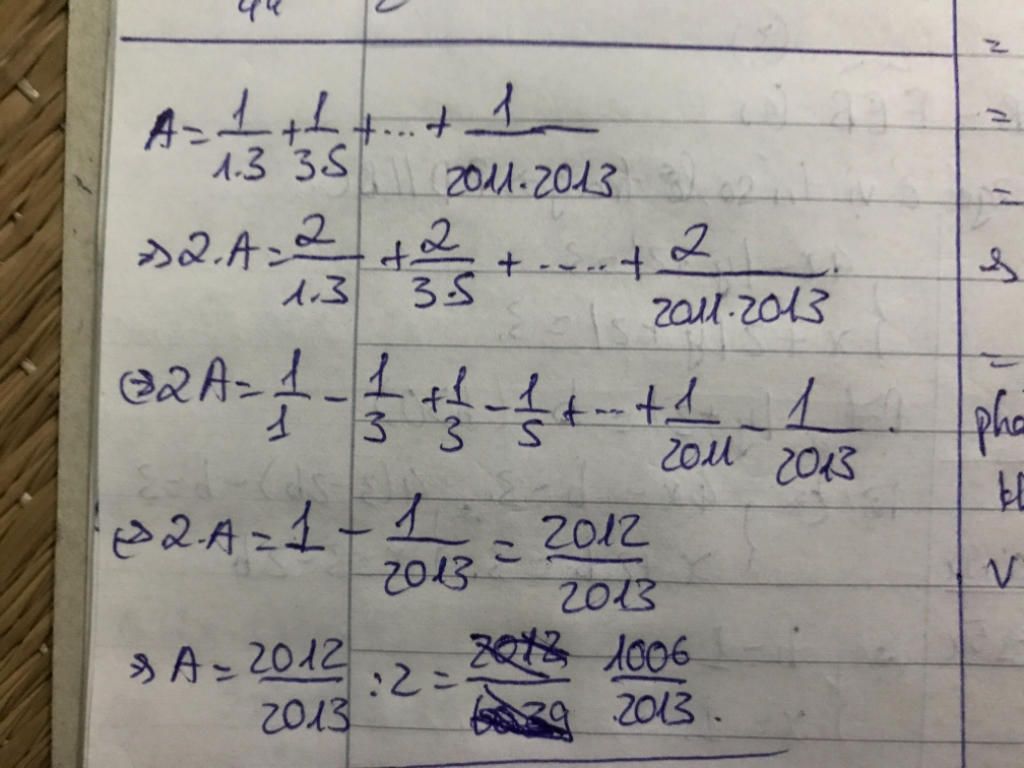 A = 1/1.3 + 1/3.5 + ... + 1/2011.2013
=> 2.A = 2/1.3 + 2/3.5 + ..... + 2/2011.2013
<=> 2A = 1/1 - 1/3 + 1/3 - 1/5 + ... + 1/2011 - 1/2013
<=> 2.A = 1 - 1/2013 = 2012/2013
=> A = 2012/2013 : 2 = 1006/2013.